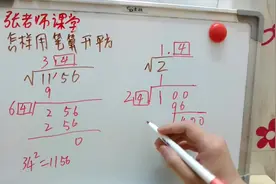 张老师课堂
怎样用笔算开平方
3 4
√1156
9
6 4 256
256
0
34²=1156
1. 4
√2
1
2 4 1 00
96
400